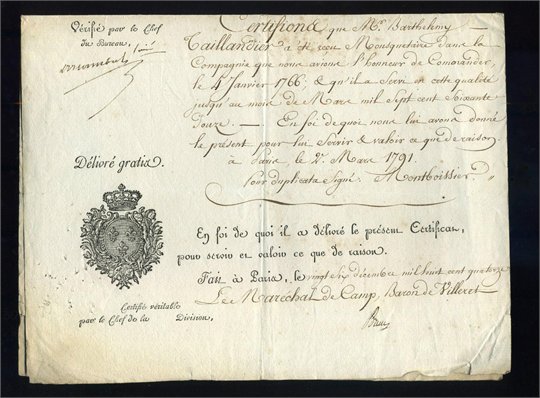 Vérifié par le Chef
du Bureau,
Certifions que Mr. Barthelemy
Taillandier a été reçu Mousquetaire dans la
Compagnie que nous avions l'honneur de Comander,
le 4 Janvier 1766; & qu'il a Servi en cette qualité
jusqu'au mois de Mars mil Sept cent Soixante
douze. — En foi de quoi nous lui avons donné
le présent pour lui Servir & valoir ce que de raison.
à Paris, le 2. Mars 1791.
Pour duplicata Signé. Montboissier.
Délivré gratis.
En foi de quoi il a délivré le présent Certificat,
pour servir et valoir ce que de raison.
Fait à Paris, le vingt Six décembre mil huit cent quatorze
Le Maréchal de Camp, Baron de Villeret
Certifié véritable
par le Chef de la Division,